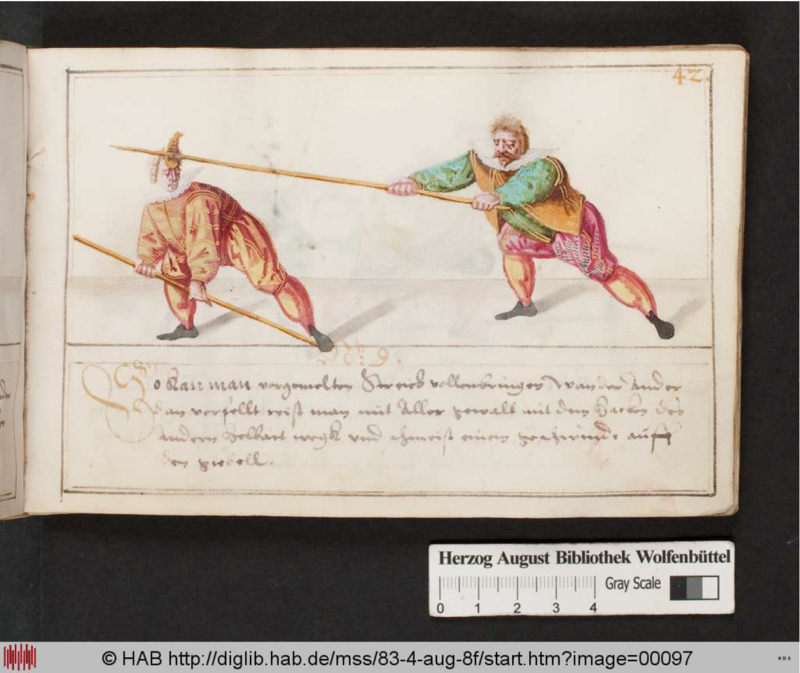 42.
9.
So kan man vorgemelten Streich vollenbringen wan der ander
dan verfellt reist man mit aller gewalt mit dem hacken des
andern helbart wegk und schmeist einem geschwinde auff
den giebell.
Herzog August Bibliothek Wolfenbüttel
Gray Scale
0 1 2 3 4
© HAB http://diglib.hab.de/mss/83-4-aug-8f/start.htm?image=00097